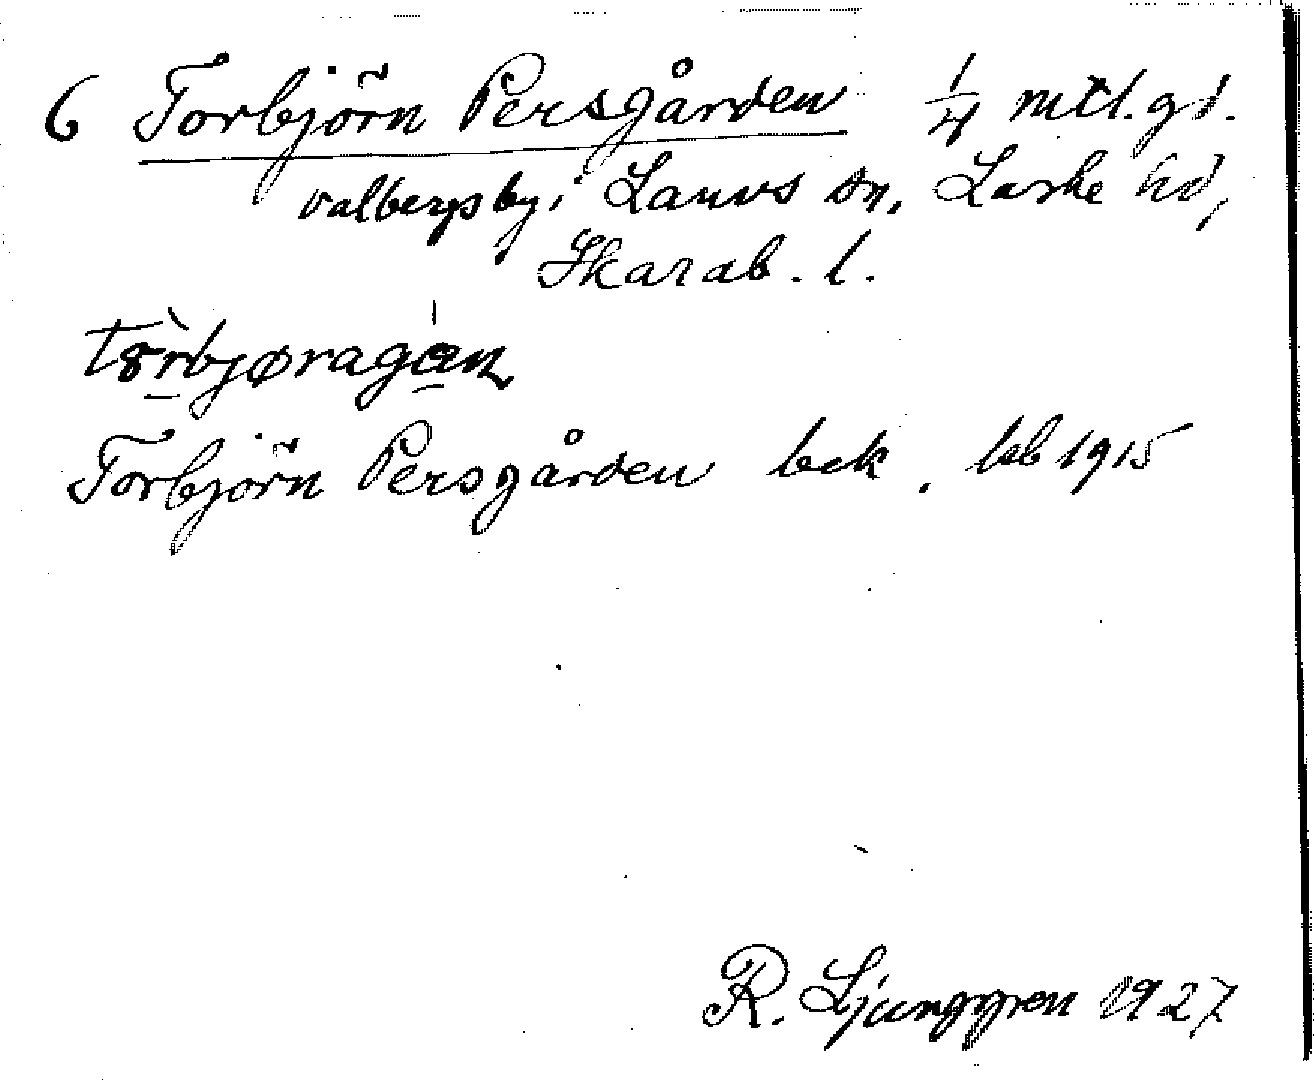 6 Torbjörn Persgården 1/4 mtl. gd.
Valbergs by, Lanvs sn, Laske hd,
Skarab. l.
Torbjörn Persgården bek, kb 1915
R. Ljunggren 1927